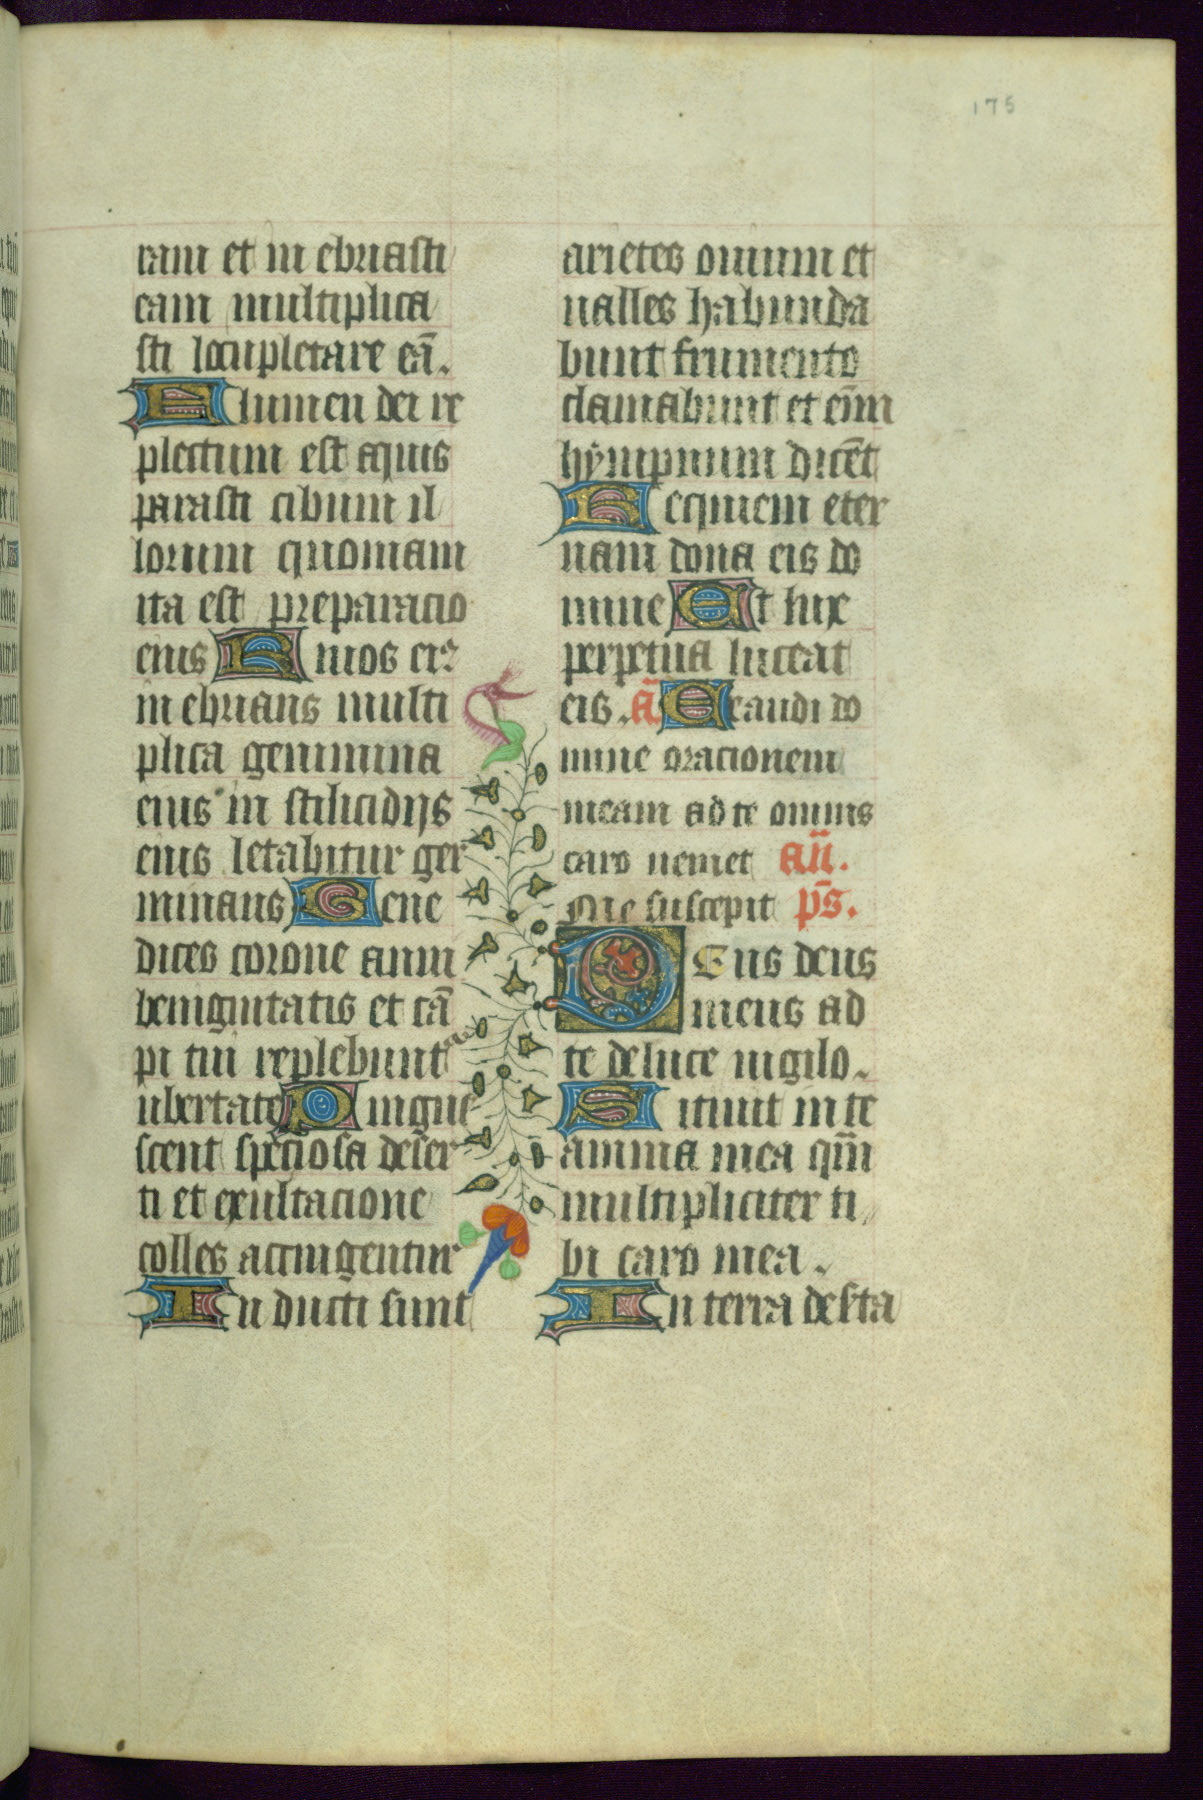 175
ram et in ebriasti
eam multiplica
sti locupletare eā.
Flumen dei re
pletum est aquis
parasti cibum il
lorum quoniam
ita est preparacio
eius Riuos eis
in ebrians multi
plica genimina
eius in stilicidijs
eius letabitur ger
minans Bene
dices corone anni
benignitatis et cā
pi tui replebunt
ubertate Pingue
scent speciosa deser
ti et exultacione
colles accingentur
In ducti sunt
arietes ouium et
ualles habunda
bunt frumento
clamabunt et eni̅m
hÿmpnum dicēt
Requiem eter
nam dona eis do
mine Et lux
perpetua luceat
eis. ā Exaudi do
mine oracionem
meam ad te omnis
caro ueniet an̄.
Me suscepit ps̄.
DEus deus
meus ad
te de luce uigilo.
Sitiuit in te
anima mea qm̄
multipliciter ti
bi caro mea.
In terra deserta